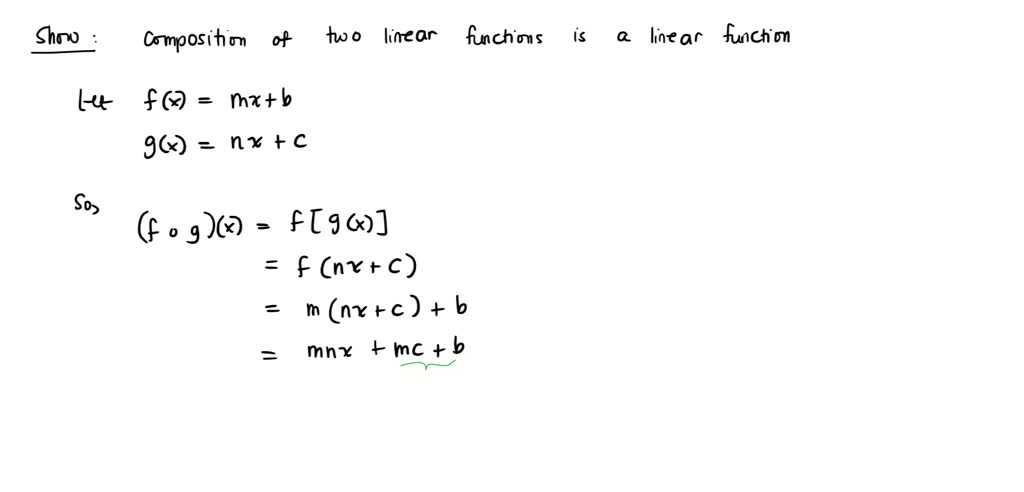 Show: Composition of two linear functions is a linear function
Let f(x) = mx+b
g(x) = nx + c
So,
(f o g)(x) = f[g(x)]
= f(nx+c)
= m(nx+c) + b
= mnx + mc + b